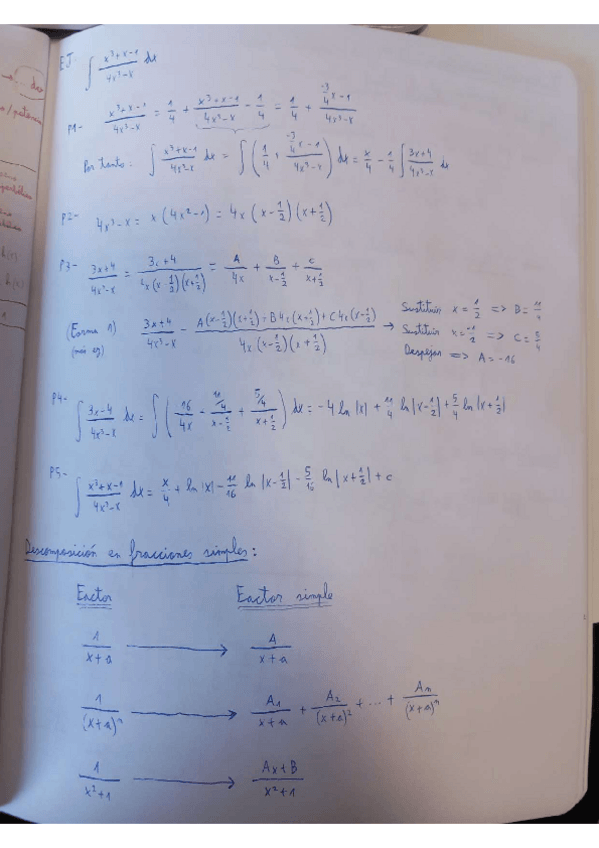 EJ: ∫ (x³+x-1)/(4x³-x) dx
P1- (x³+x-1)/(4x³-x) = 1/4 + (x³+x-1)/(4x³-x) - 1/4 = 1/4 + (-3/4 x - 1)/(4x³-x)
Por tanto: ∫ (x³+x-1)/(4x³-x) dx = ∫ (1/4 + (-3/4 x - 1)/(4x³-x)) dx = x/4 - 1/4 ∫ (3x+4)/(4x³-x) dx
P2- 4x³-x = x(4x²-1) = 4x(x-1/2)(x+1/2)
P3- (3x+4)/(4x³-x) = (3x+4)/(4x(x-1/2)(x+1/2)) = A/(4x) + B/(x-1/2) + C/(x+1/2)
(Forma 1) (3x+4)/(4x³-x) = (A(x-1/2)(x+1/2)+B4x(x+1/2)+C4x(x-1/2))/(4x(x-1/2)(x+1/2)) → Sustituir x = 1/2 => B = 11/4
Sustituir x = -1/2 => C = 5/4
Despejar => A = -16
P4- ∫ (3x-4)/(4x³-x) dx = ∫ (16/(4x) - (11/4)/(x-1/2) + (5/4)/(x+1/2)) dx = -4 ln|x| + 11/4 ln|x-1/2| + 5/4 ln|x+1/2|
P5- ∫ (x³+x-1)/(4x³-x) dx = x/4 + ln|x| - 11/16 ln|x-1/2| - 5/16 ln|x+1/2| + c
Descomposición en fracciones simples:
Factor Factor simple
1/(x+a) → A/(x+a)
1/(x+a)ⁿ → A₁/(x+a) + A₂/(x+a)² + ... + Aₙ/(x+a)ⁿ
1/(x²+1) → (Ax+B)/(x²+1)